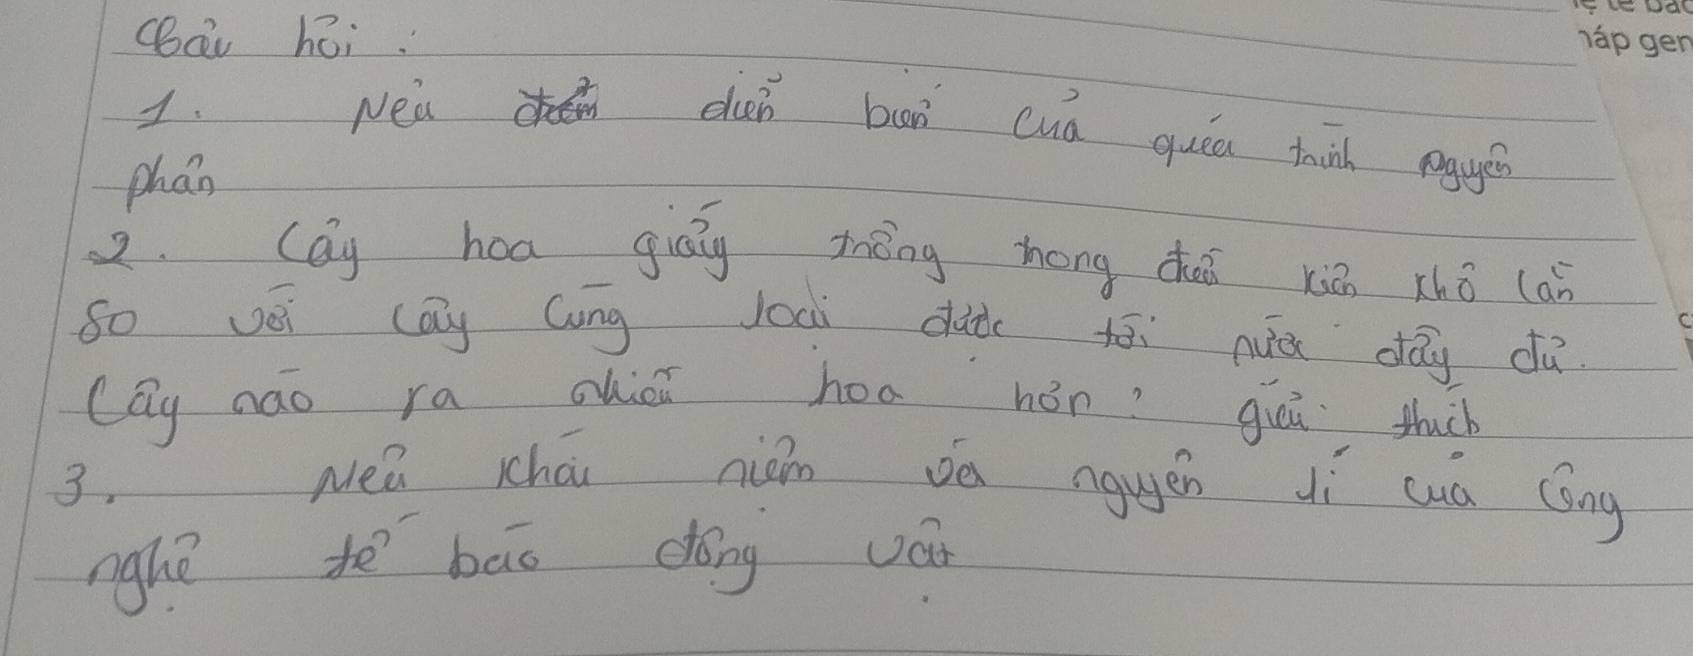 Câu hỏi :
1. Nêu diễn biến của quá trình nguyên
phân
2. Cây hoa giấy trồng trong điều kiện khô cằn
so với cây cùng loài được tưới nước đầy đủ.
Cây nào ra nhiều hoa hơn? giải thích
3. Nêu khái niệm và nguyên lí của công
nghệ tế bào động vật
áp gen